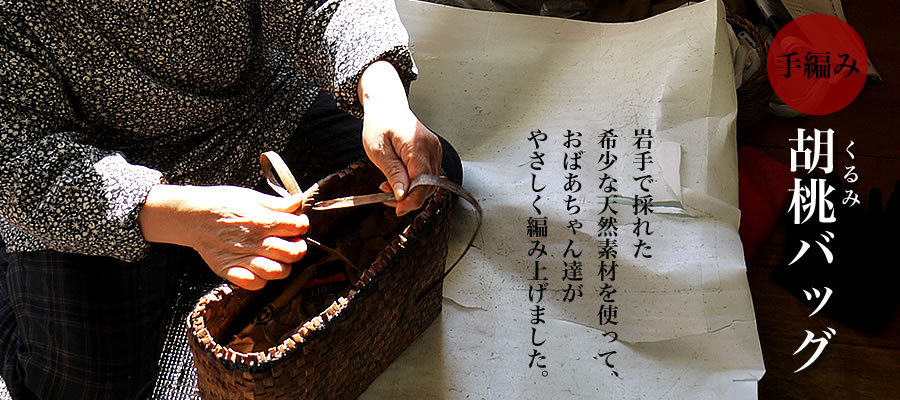 手編み
胡桃バッグ
くるみ
岩手で採れた
希少な天然素材を使って、
おばあちゃん達が
やさしく編み上げました。